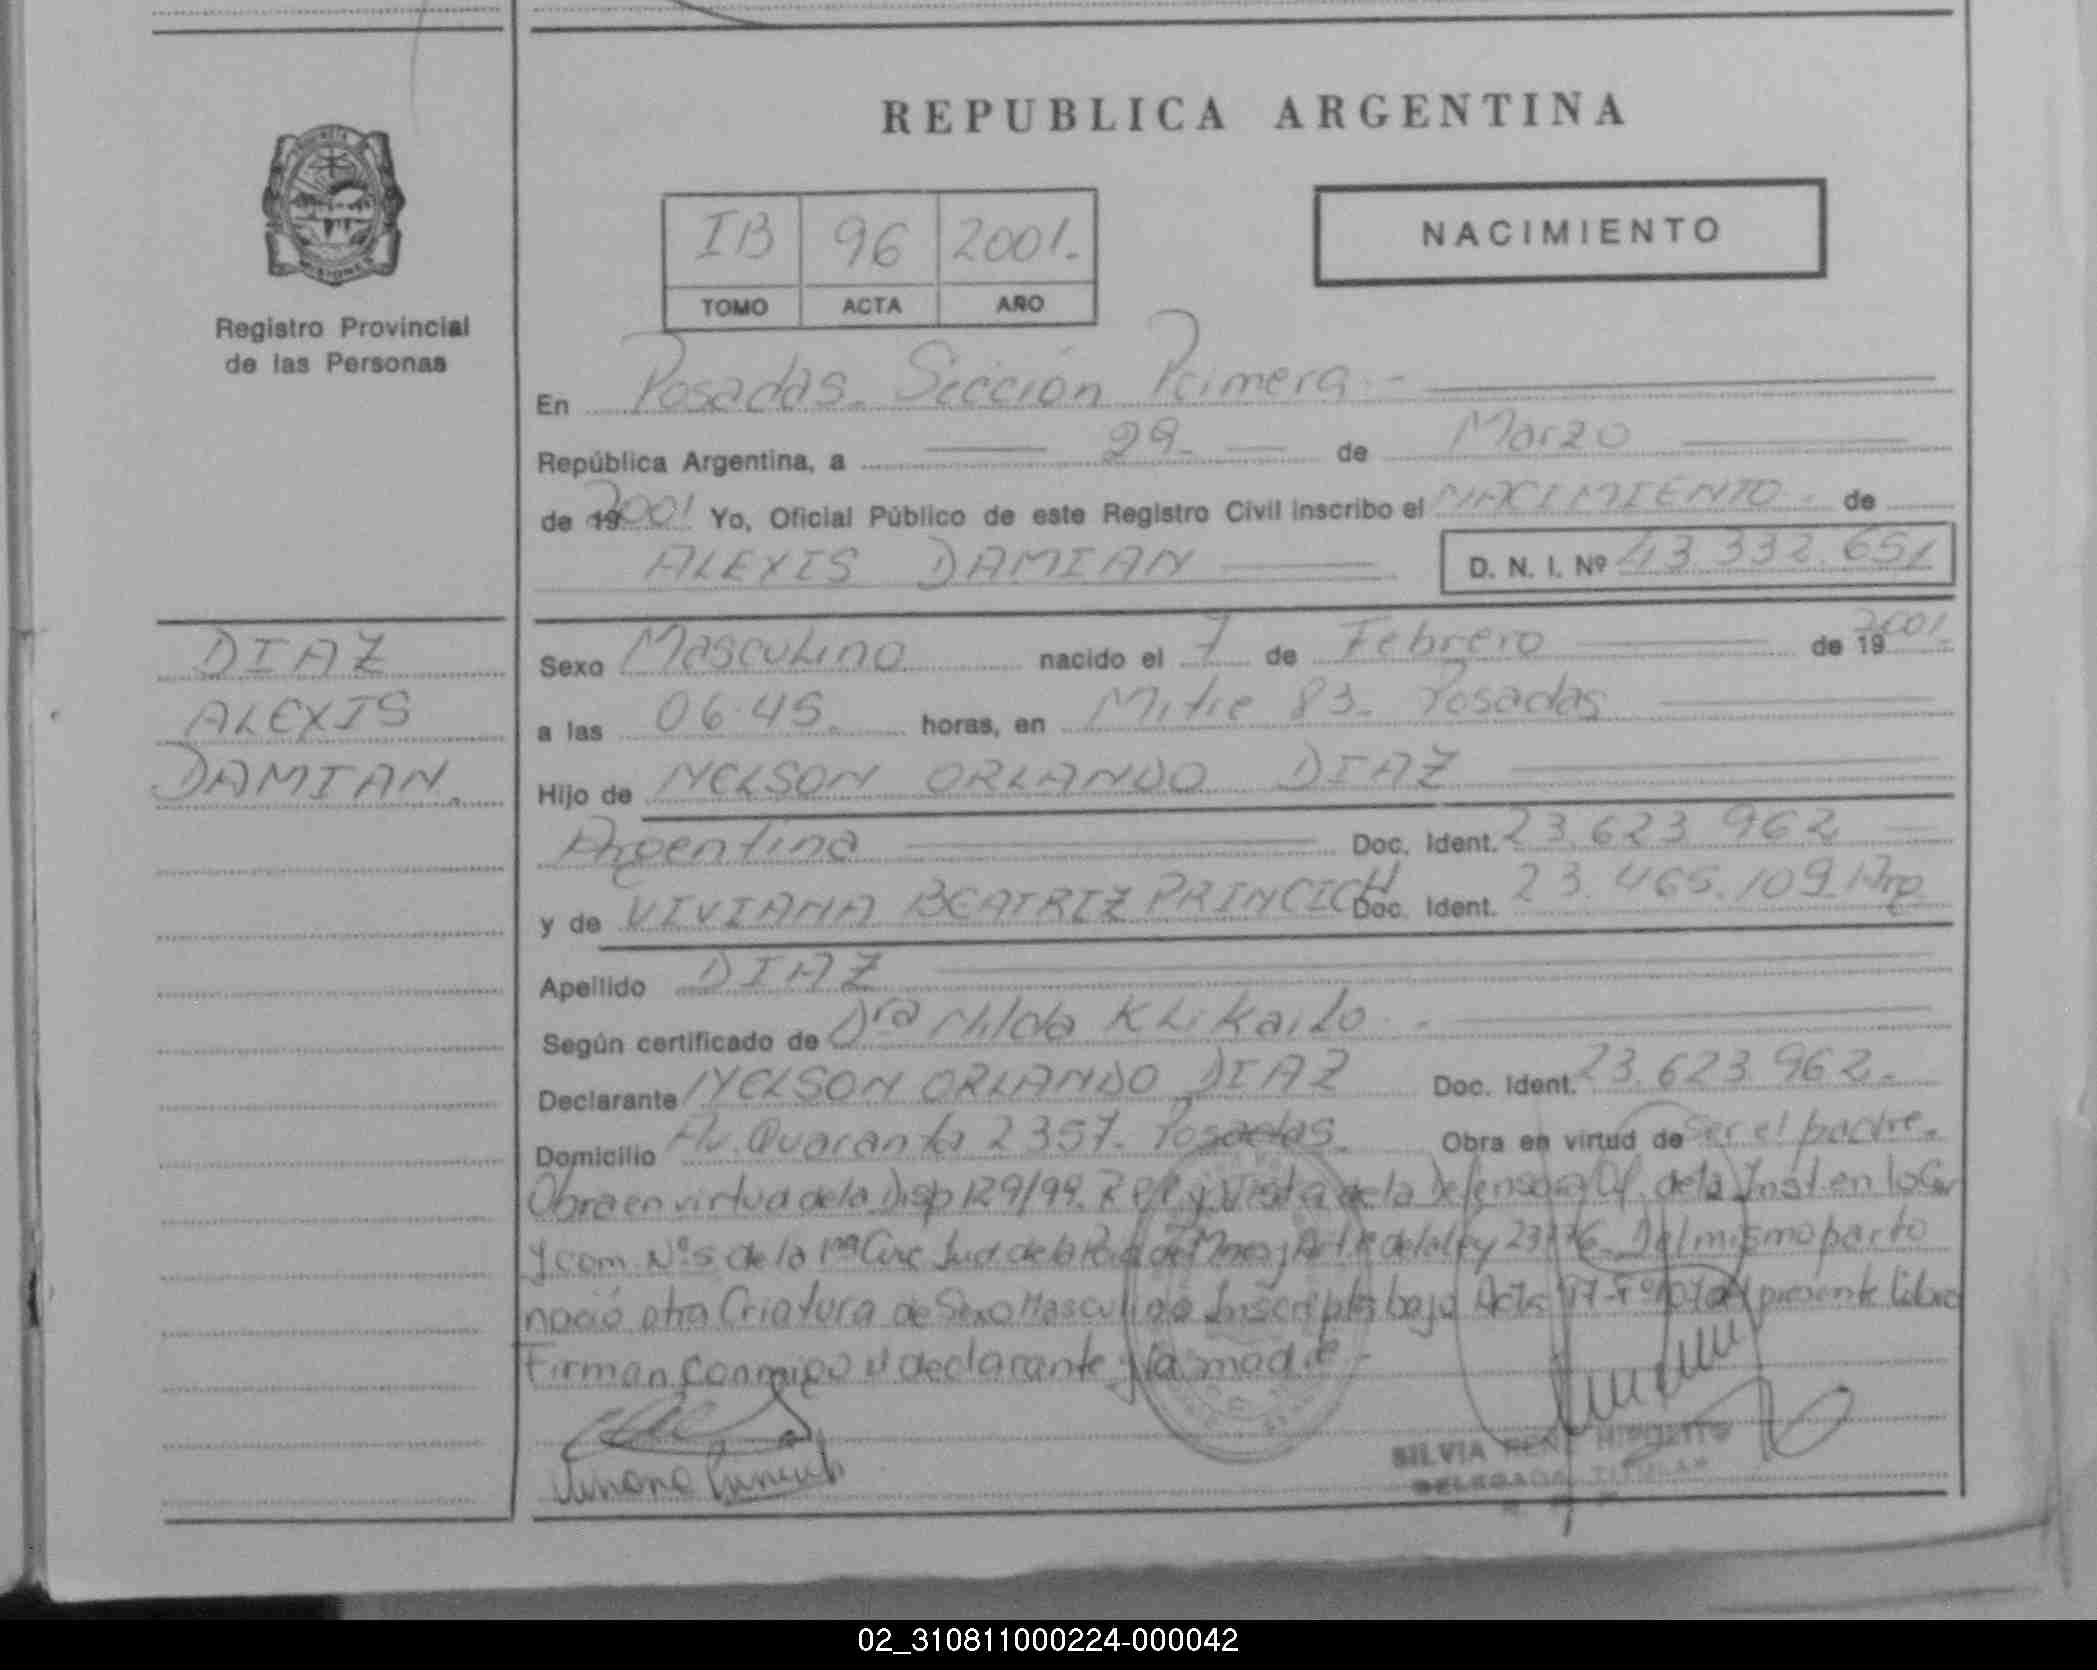 REPUBLICA ARGENTINA
NACIMIENTO
IB 96 2001.
TOMO ACTA AÑO
MISIONES
Registro Provincial
de las Personas
En Posadas. Sección Primera.-
República Argentina, a 29 de Marzo
de 19 2001 Yo, Oficial Público de este Registro Civil inscribo el NACIMIENTO. de
ALEXIS DAMIAN D. N. I. Nº 43.332.651
DIAZ
ALEXIS
DAMIAN.
Sexo Masculino nacido el 7 de Febrero de 19 2001.
a las 06.45. horas, en Mitre 83. Posadas
Hijo de NELSON ORLANDO DIAZ
Argentina Doc. Ident. 23.623.962
y de VIVIANA BEATRIZ PRINCICH Doc. Ident. 23.465.109 Arg
Apellido DIAZ
Según certificado de Dra Nilda Klikailo.
Declarante NELSON ORLANDO DIAZ Doc. Ident. 23.623.962.
Domicilio Av. Quaranta 2357. Posadas. Obra en virtud de Ser el padre.
Obra en virtud de la Disp 129/99. y Vista de la Defensora Of. de la Inst en lo
y com. Nº 5 de la 1ra Circ Jud. de la de la ley Del mismo parto
nació otra Criatura de Sexo Masculino Inscripta bajo Acta 97 presente Libro
Firman conmigo el declarante y la madre.-
Viviana Princich
SILVIA HIPOLITO
DELEGADA TITULAR
02_310811000224-000042